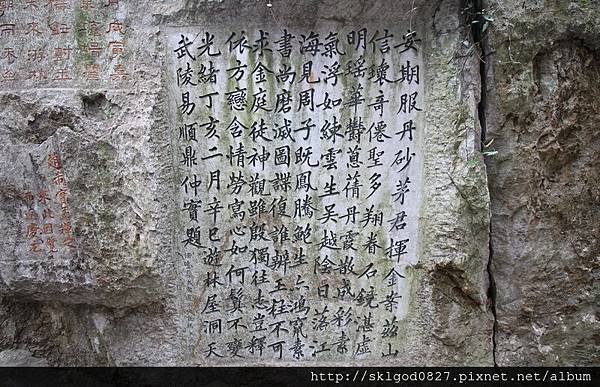 安期服丹砂茅君揮金案茲山
信瓌奇僊聖多翔眷石鏡湛虛
明瑤華鬱蔥蒨丹霞散成彩素
氣浮如練雲生吳越陰日落江
海見周子既鳳騰鮑生亦鴻冥素
書尚磨滅圖諜復誰辦玉柱不可
求金庭徒神觀雖殷獨往志豈釋
依方戀含情勞寫心如何鬒不變
光緒丁亥二月辛巳遊林屋洞天
武陵易順鼎仲實題
http://sklgod0827.pixnet.net/album